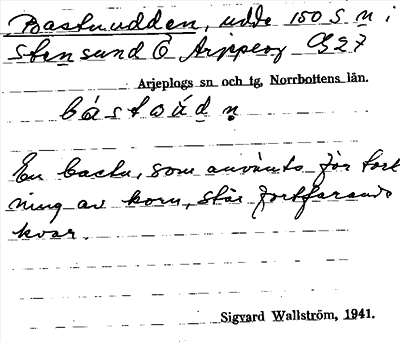 Bastuudden, udde 150 S n i
Stensund Ö Arjeplog G 27
Arjeplogs sn och tg, Norrbottens län.
bástuád n
En bastu, som använts för tork
ning av korn, står fortfarande
kvar.
Sigvard Wallström, 1941.